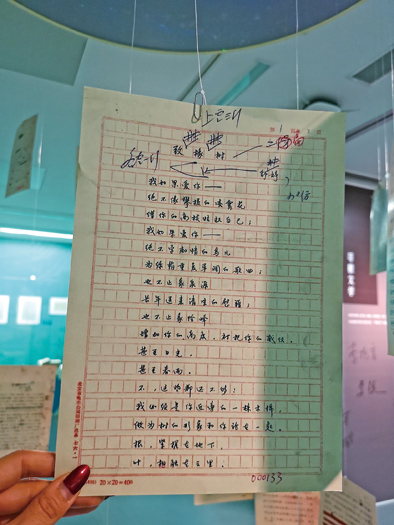 致橡树
舒婷
我如果爱你——
绝不像攀援的凌霄花
借你的高枝炫耀自己；
我如果爱你——
绝不学痴情的鸟儿
为绿荫重复单调的歌曲；
也不止象泉源
长年送来清凉的慰藉；
也不止象险峰
增加你的高度，衬托你的威仪。
甚至日光，
甚至春雨。
不，这些都还不够！
我必须是你近旁的一株木棉，
做为树的形象和你站在一起。
根，紧握在地下
叶，相触在云里。
20×20=400
000133